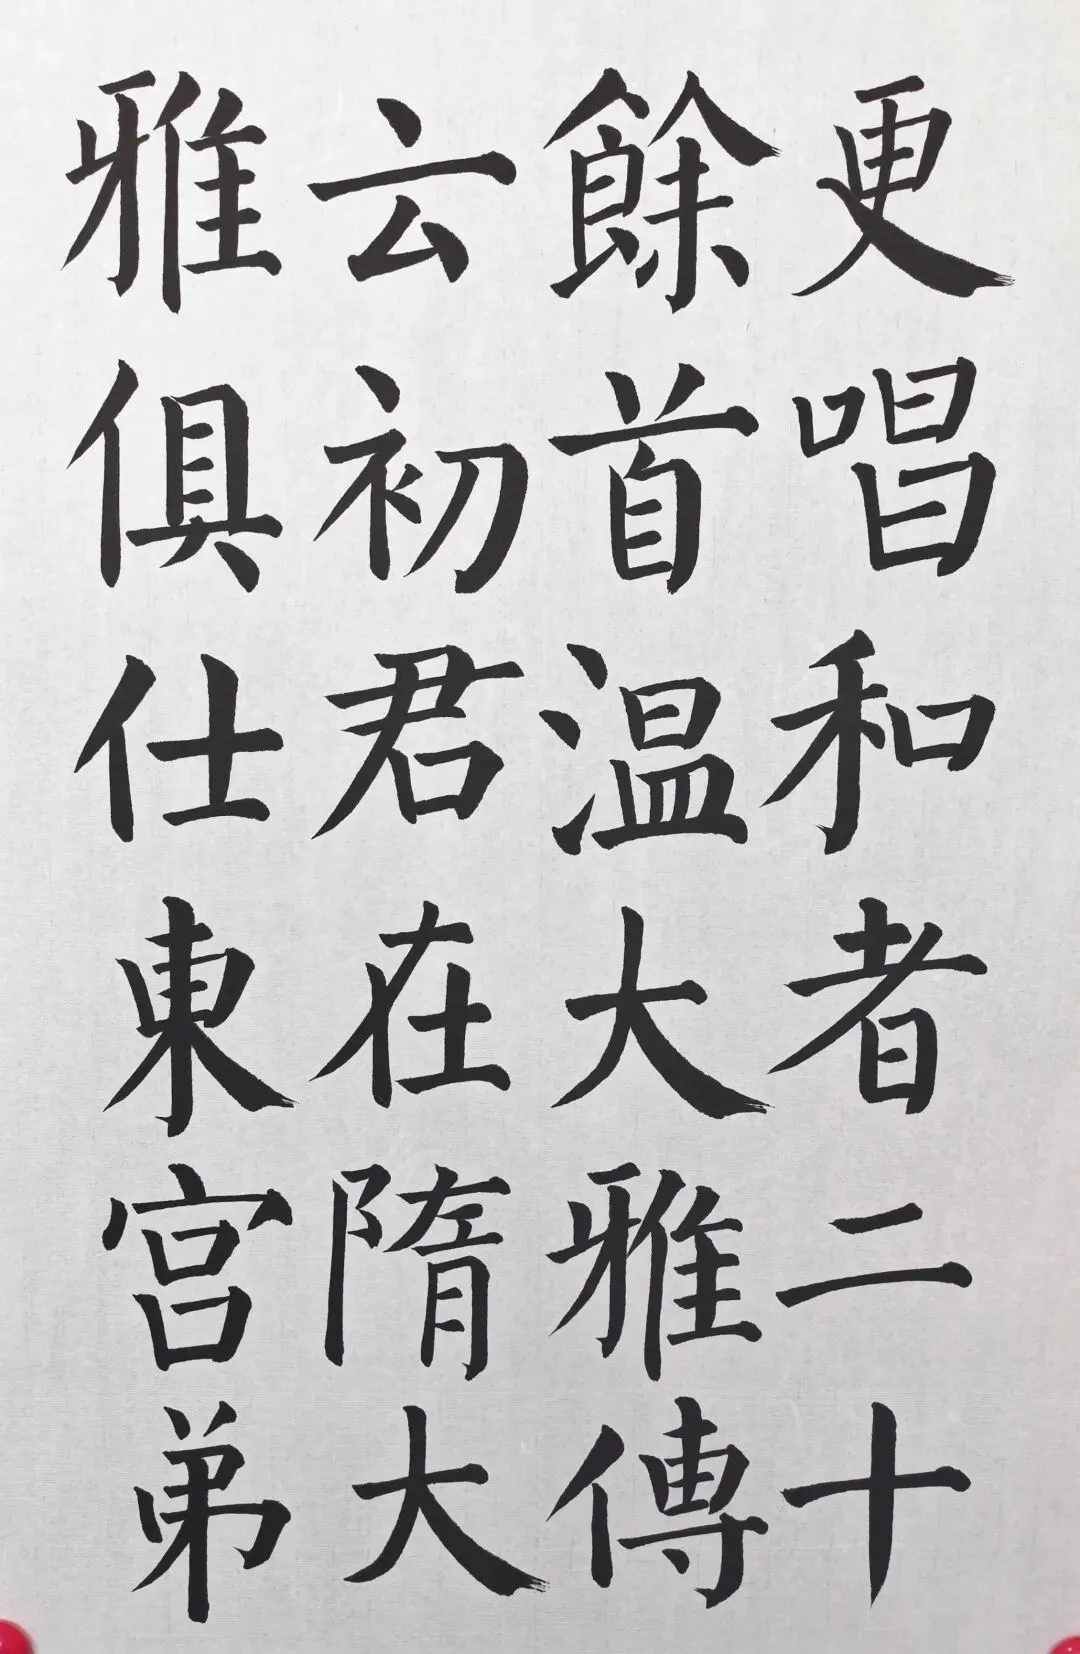 更唱和者二十
餘首温大雅傳
云初君在隋大
雅俱仕東宫弟